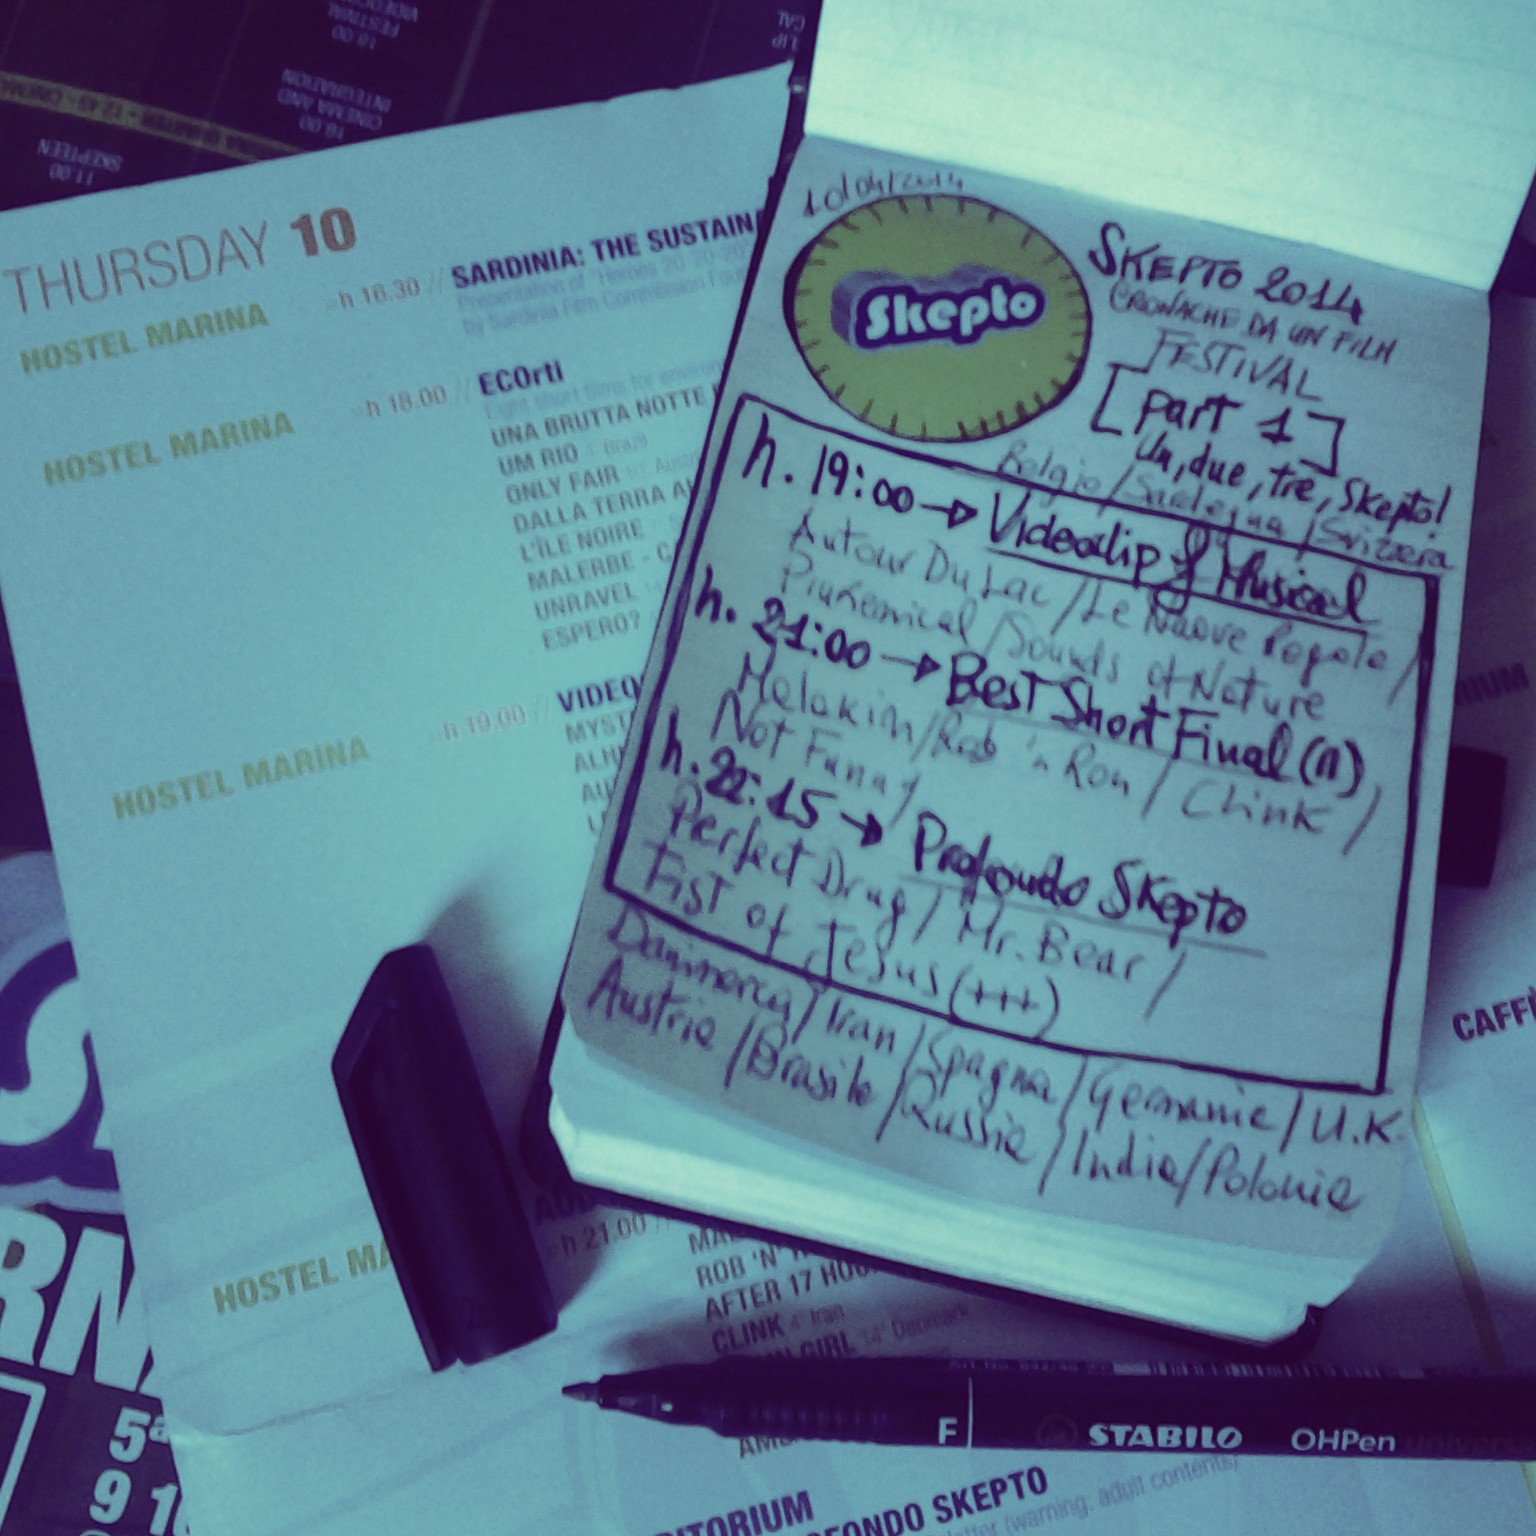 VIDEOC
FESTIVAL
18.00
CINEMA AND
INTEGRATION
16.00
SKEPTEEN
11.00
THURSDAY 10
HOSTEL MARINA h 16.30 // SARDINIA: THE SUSTAINA
Presentation of "Heroes 20.20.20
by Sardinia Film Commission Foun
HOSTEL MARINA h 18.00 // ECOrti
UNA BRUTTA NOTTE
UM RIO 4' Brazil
ONLY FAIR
DALLA TERRA A
L'ÎLE NOIRE
MALERBE - C
UNRAVEL
ESPERO?
HOSTEL MARINA h 19.00 // VIDEO
MYST
HOSTEL MA h 21.00 //
ROB 'N'
AFTER 17 HOU
CLINK 4' Iran
GIRL 14' Denmark
ITORIUM
FONDO SKEPTO
(warning, adult contents)
10/04/2014
Skepto
SKEPTO 2014
CRONACHE DA UN FILM
FESTIVAL
[part 1]
Un, due, tre, Skepto!
Belgio/Sardegna/Svizzera
h. 19:00 → Videoclip & Musical
Autour Du Lac/Le Nuove Pogole/
Piukemical/Sounds of Nature
h. 21:00 → Best Short Final (A)
Malakim/Rob 'n Ron/Clink/
Not Funny
h. 22:15 → Profondo Skepto
Perfect Drug/Mr. Bear/
Fist of Jesus (+++)
Danimarca/Iran/Spagna/Germania/U.K.
Austria/Brasile/Russia/India/Polonia
CAFFÈ
RIUM
RNA
5ª
9 1
F STABILO OHPen universal